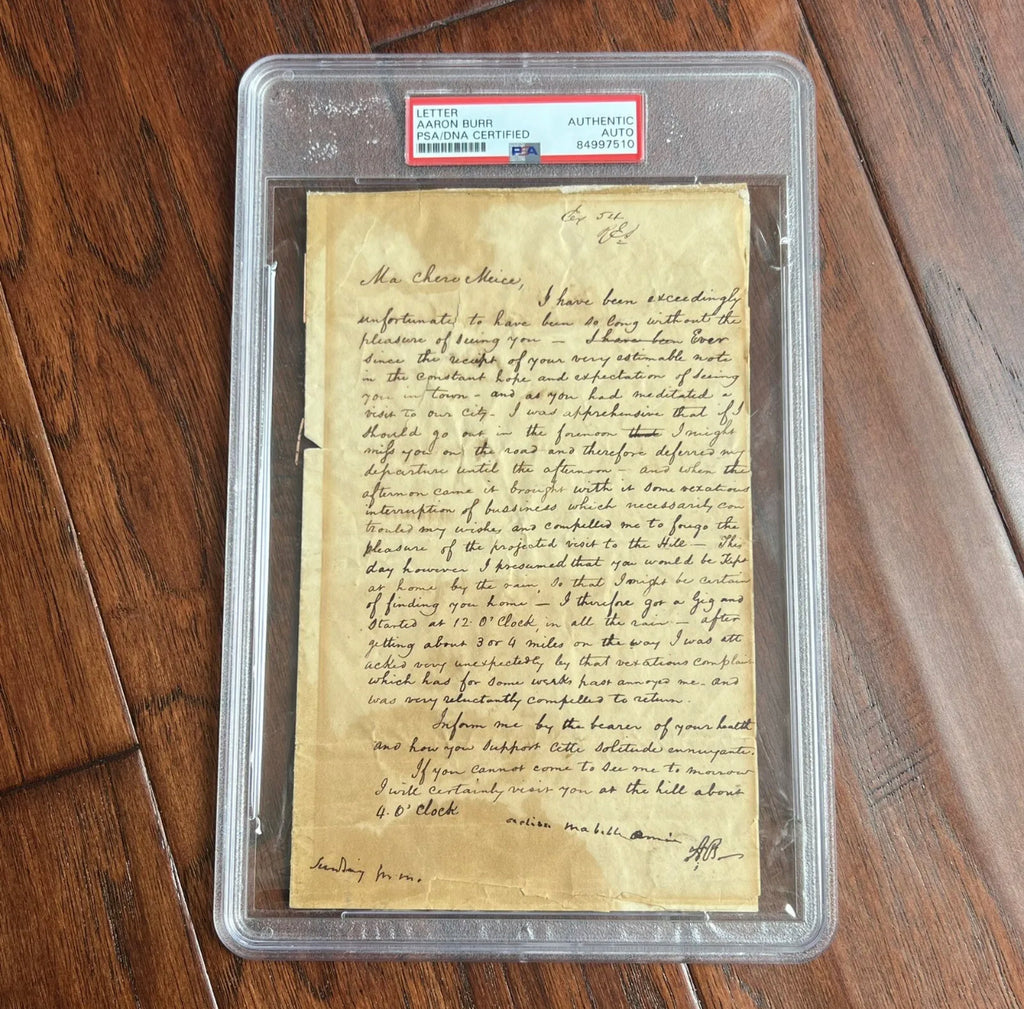 LETTER
AARON BURR
PSA/DNA CERTIFIED
AUTHENTIC
AUTO
84997510
PSA
Ma chere Meice,
I have been exceedingly
unfortunate to have been so long without the
pleasure of seeing you — I have been Ever
since the receipt of your very estimable note
in the constant hope and expectation of seeing
you in town - and as you had meditated a
visit to our city - I was apprehensive that if I
should go out in the forenoon that I might
miss you on the road and therefore deferred my
departure until the afternoon — and when the
afternon came it brought with it some vexatious
interruption of bussiness which necessarily con
trouled my wishes and compelled me to forego the
pleasure of the projected visit to the Hill — This
day however I presumed that you would be Kept
at home by the rain, so that I might be certain
of finding you home — I therefore got a Gig and
started at 12. O'Clock in all the rain — after
getting about 3 or 4 miles on the way I was att
acked very unexpectedly by that vexatious complain
which has for some weeks past annoyed me - and
was very reluctantly compelled to return.
Inform me by the bearer of your health
and how you support cette solitude ennuyante.
If you cannot come to see me to morrow
I will certainly visit you at the hill about
4. O'Clock
ma belle
AB